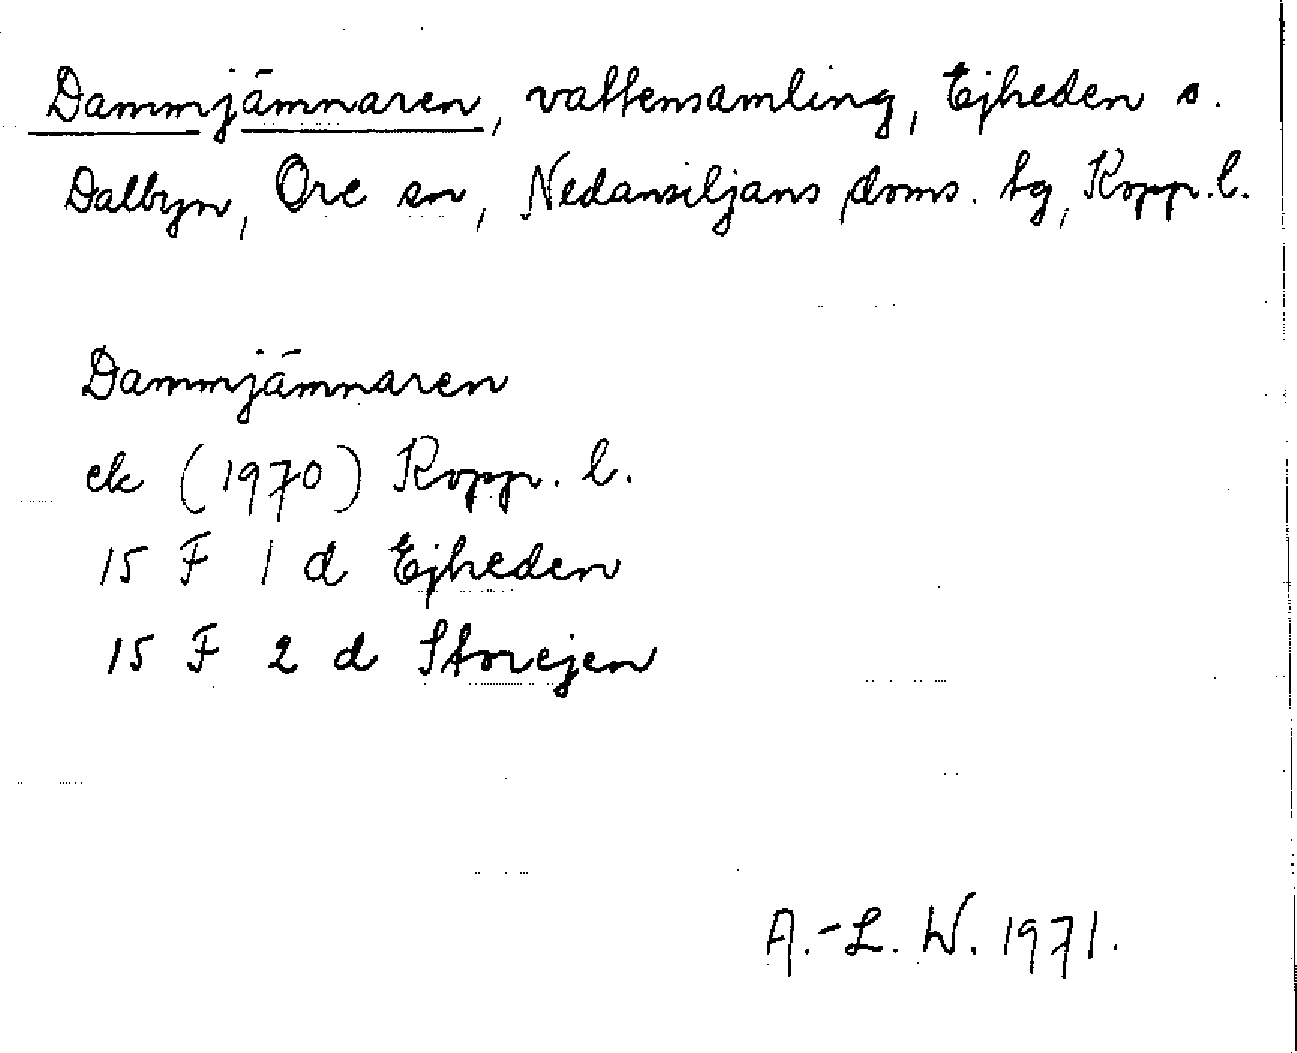 Dammjämnaren, vattensamling, Ejheden s.
Dalbyn, Ore sn, Nedansiljans doms. tg, Kopp. l.
Dammjämnaren
ek (1970) Kopp. l.
15 F 1 d Ejheden
15 F 2 d Storejen
A.-L. W. 1971.